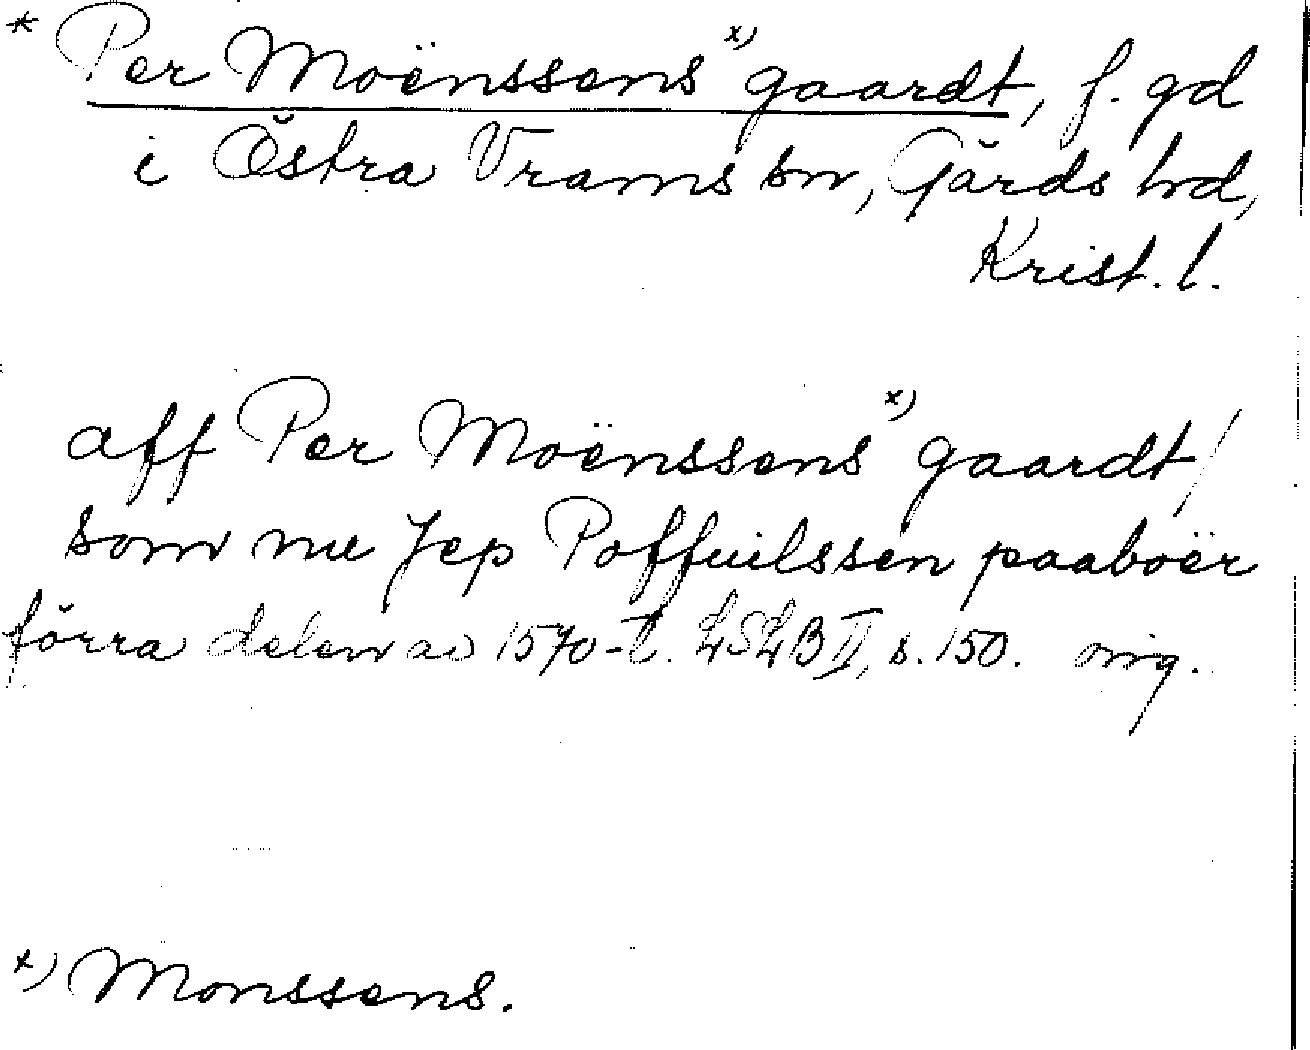 * Per Moënssens x) gaardt, f. gd
i Östra Vrams sn, Gärds hd,
Krist. l.
aff Per Moënssens x) gaardt/
som nu Jep Poffuilssen paaboër
förra delen av 1570-t. LSLB II, s. 150. orig.
x) Monssens.